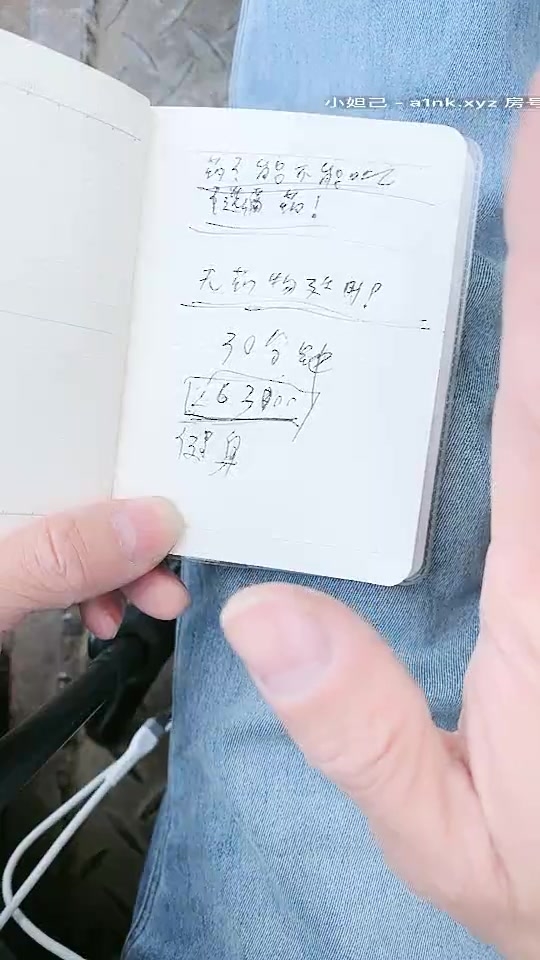 小妲己 - a1nk.xyz 房号
药了能不能吃了
药!
无药物效用?
30分钟
630
健身